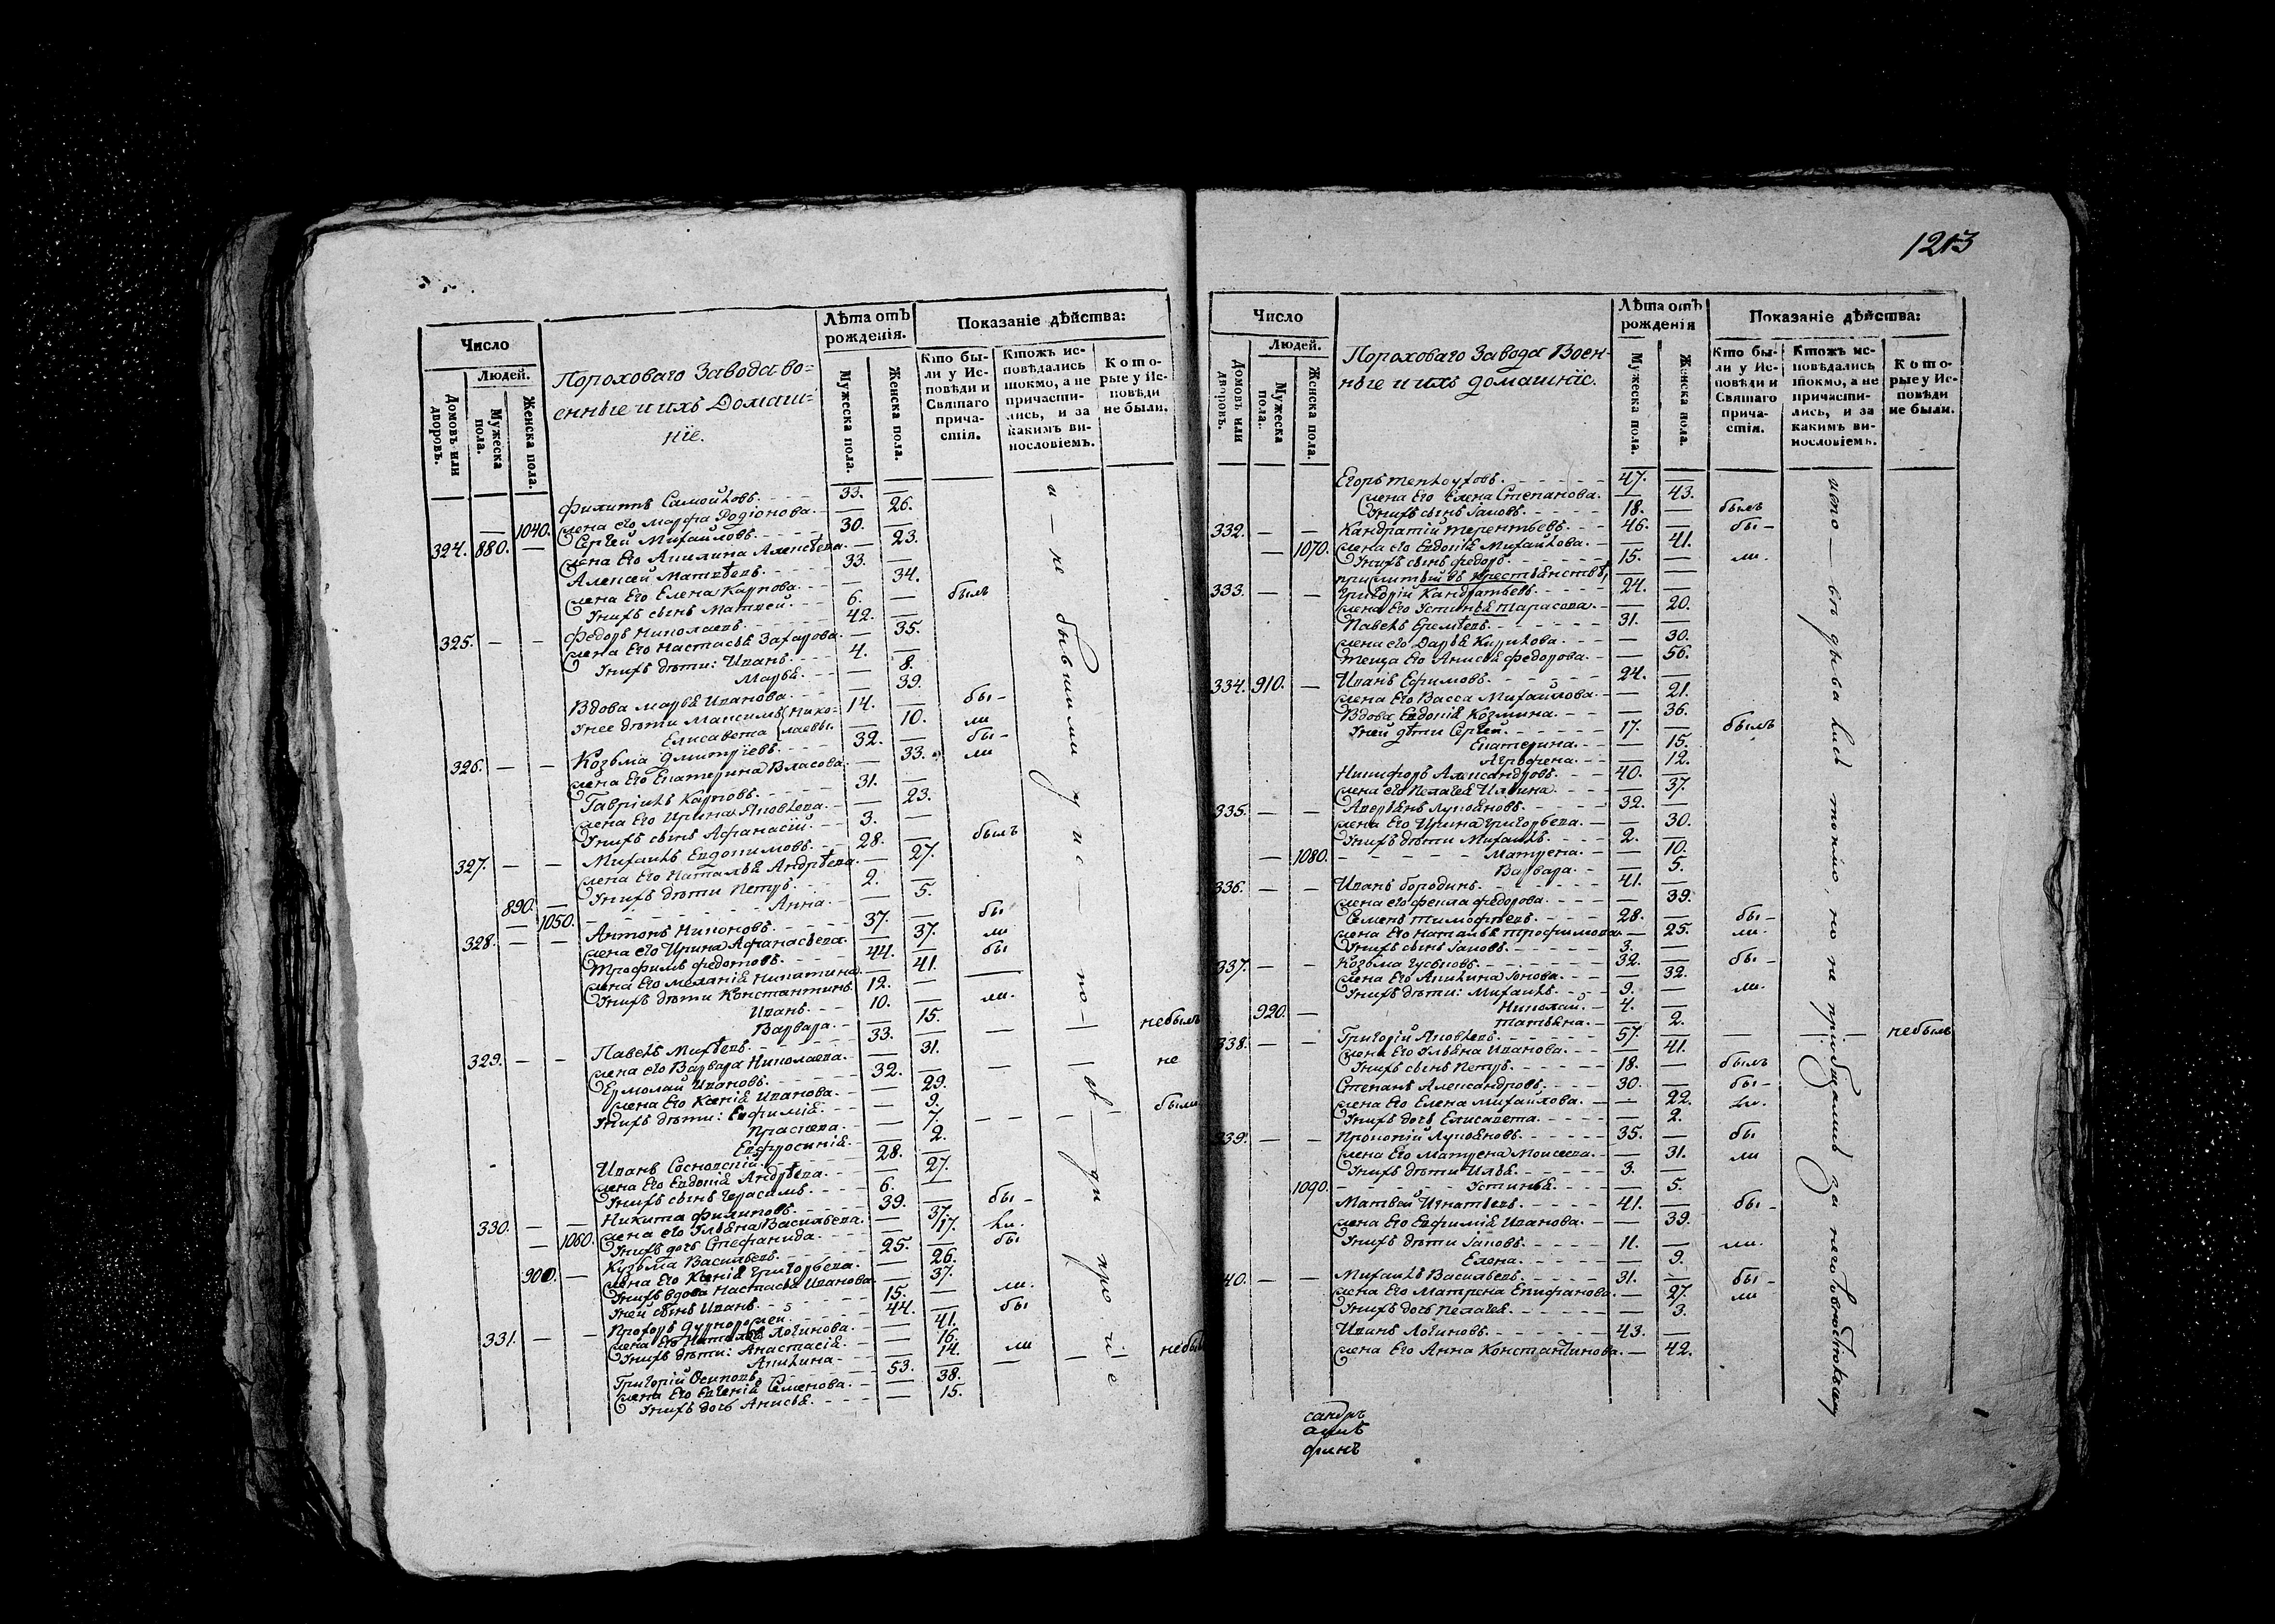 1213
Число
Людей.
Домовъ или дворовъ.
Мужеска пола.
Женска пола.
Пороховаго Завода во=
енные и ихъ Домаш=
нїе.
Лѣта отъ рожденія.
Мужеска пола.
Женска пола.
Показаніе дѣйства:
Кто бы-
ли у Ис-
повѣди и
Святаго
прича-
стія.
Ктожъ ис-
повѣдались
токмо, а не
причасти-
лись, и за
какимъ ви-
нословіемъ.
Кото-
рые у Ис-
повѣди
не были.
Филиппъ Самойловъ. 33. —
1040. Жена его Марфа Родіонова. — 26.
324. 880. — Сергей Михайловъ. 30. —
Жена Его Акилина Алексѣева. — 23.
Алексей Матвѣевъ. 33. —
Жена Его Елена Карпова. — 34.
У нихъ сынъ Матвей. 6. — былъ
325. — — Федоръ Николаевъ. 42. —
Жена Его Настасья Захарова. — 35.
У нихъ дѣти: Иванъ. 4. —
Марья. — 8.
Вдова Марья Иванова. — 39. бы-
У нее дѣти Максимъ Нико= 14. —
Елисавета лаевы. — 10. ли
326. — — Козьма Дмитріевъ. 32. — бы-
Жена Его Екатерина Власова. — 33. ли
Гавріилъ Карповъ. 31. —
Жена Его Ирина Яковлева. — 23.
У нихъ сынъ Афанасій. 3. —
327. — — Михаилъ Евдокимовъ. 28. — былъ
Жена Его Наталья Андрѣева. — 27.
890. — У нихъ дѣти Петръ. 2. —
— 1050. Анна. — 5.
328. — — Антонъ Никоновъ. 37. — бы
Жена его Ирина Афанасьева. — 37. ли
Трофимъ Федотовъ. 44. — бы
Жена Его Меланія Никитина. — 41.
У нихъ дѣти Константинъ 12. —
Иванъ. 10. — ли.
Варвара. — 15.
329. — — Павелъ Михѣевъ. 33. — небылъ
Жена его Варвара Николаева. — 31.
Ермолай Ивановъ. 32. — не
Жена Его Ксенія Иванова. — 29.
У нихъ дѣти: Евфимія. — 9. были
Прасковья. — 7.
Евфросинія. — 2.
Иванъ Сосновскій. 28. —
Жена Его Евдокія Андрѣева. — 27.
У нихъ сынъ Герасимъ. 6. —
330. — — Никита Филиповъ. 39. — бы-
Жена его Ульяна Васильева. — 37.
— 1060. У нихъ дочь Стефанида. — 17. ли.
900. — Кузьма Васильевъ. 25. — бы
Жена Его Ксенія Григорьева. — 26.
У нихъ вдова Настасья Иванова. — 37.
У ней сынъ Иванъ. 15. — ли.
331. — — Прохоръ 44. — бы
Жена Его Наталья Логинова. — 41.
У нихъ дѣти: Анастасія. — 16.
Акилина. — 14. ли
Григорій Осиповъ. 53. — небыл
Жена Его Евгенія Семенова. — 38.
У нихъ дочь Анисья. — 15.
и — не бывшими у ис — по — вѣ — ди прочіе
Число
Людей.
Домовъ или дворовъ.
Мужеска пола.
Женска пола.
Пороховаго Завода Воен-
ные и ихъ домашніе.
Лѣта отъ рожденія
Мужеска пола.
Женска пола.
Показаніе дѣйства:
Кто бы-
ли у Ис-
повѣди и
Святаго
прича-
стія.
Ктожъ ис-
повѣдались
токмо, а не
причасти-
лись, и за
какимъ ви-
нословіемъ.
Кото-
рые у Ис-
повѣди
не были.
Егоръ 47. —
Жена Его Елена Степанова. — 43.
У нихъ сынъ Іаковъ. 18. — былъ
332. — Кандратій Терентьевъ. 46. — бы-
— 1070. Жена его Евдокія Михайлова. — 41.
У нихъ сынъ Федоръ. 15. — ли.
прижитый въ крестьянствѣ, — —
333. — — Григорій Кандратьевъ. 24. —
Жена Его Устинья Тарасова. — 20.
Павелъ Еремѣевъ. 31. —
Жена его Дарья Кирилова. — 30.
Теща Его Анисья Федорова. — 56.
334. 910. — Иванъ Ефимовъ. 24. —
Жена Его Васса Михайлова. — 21.
Вдова Евдокія Козмина. — 36.
У ней дѣти Сергей. 17. — былъ
Екатерина. — 15.
Агрофена. — 12.
Никифоръ Александровъ. 40. —
Жена его Пелагея Ильина. — 37.
335. — — Аверьянъ Лукьяновъ. 32. —
Жена Его Ирина Григорьева. — 30.
У нихъ дѣти Михаилъ. 2. —
— 1080. Матрена. — 10.
Варвара. — 5.
336. — — Иванъ Бородинъ. 41. —
Жена его Фекла Федорова. — 39.
Семенъ Тимофѣевъ. 28. — бы-
Жена Его Наталья Трофимова. — 25. ли.
У нихъ сынъ Іаковъ. 3. —
337. — — Козьма Гусевовъ. 32. — бы-
Жена Его Акилина Іонова. — 32.
У нихъ дѣти: Михаилъ. 9. — ли.
920. — Николай. 4. —
Татьяна. — 2.
338. — — Григорій Яковлевъ. 57. — небылъ
Жена Его Ульяна Иванова. — 41.
У нихъ сынъ Петръ. 18. — былъ
Степанъ Александровъ. 30. — бы-
Жена Его Елена Михайлова. — 22. ли.
У нихъ дочь Елисавета. — 2.
339. — — Прокопій Лукьяновъ. 35. — бы
Жена Его Матрена Моисеева. — 31. ли
У нихъ дѣти Илья. 3. —
1090. Устинья. — 5.
Матвей Игнатьевъ. 41. — бы-
Жена Его Евфимія Иванова. — 39.
У нихъ дѣти Іаковъ. 11. — ли.
Елена. — 9.
40. — — Михаилъ Васильевъ. 31. — бы-
Жена Его Матрена Епифанова. — 27. ли
У нихъ дочь Пелагея. — 3.
Иванъ Логиновъ. 43. —
Жена Его Анна Константинова. — 42.
токмо, но не пріобщались за неготовностію
сандръ
финъ